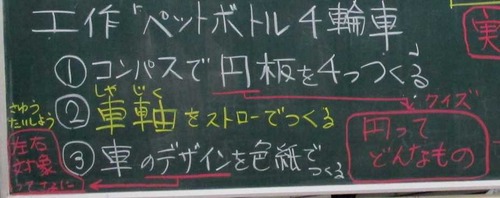 工作「ペットボトル4輪車」
①コンパスで円板を4つつくる
クイズ
円って
どんなもの
しゃじく
②車軸をストローでつくる
③車のデザインを色紙でつくる
さゆう
たいしょう
左右
対象
って
実